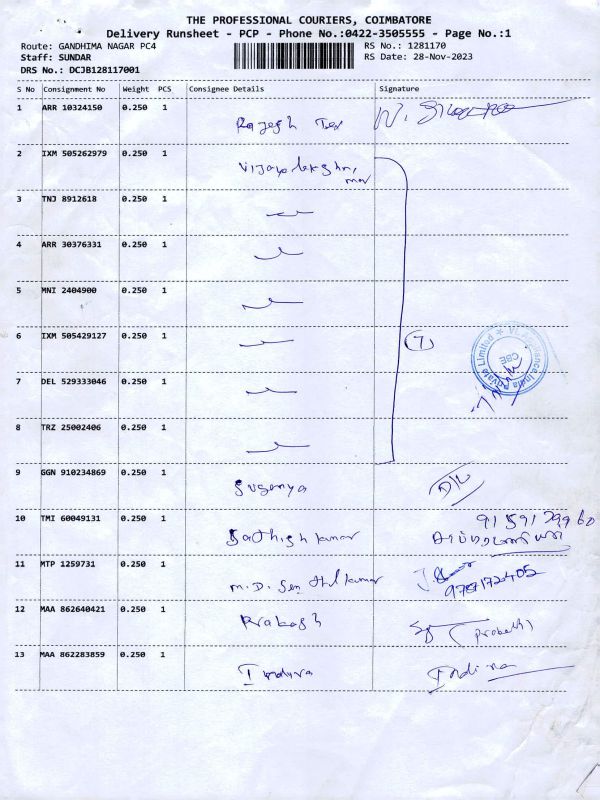 THE PROFESSIONAL COURIERS, COIMBATORE
Delivery Runsheet - PCP - Phone No.:0422-3505555 - Page No.:1
Route: GANDHIMA NAGAR PC4
RS No.: 1281170
Staff: SUNDAR
RS Date: 28-Nov-2023
DRS No.: DCJB128117001
S No Consignment No Weight PCS Consignee Details Signature
1 ARR 10324150 0.250 1
Rajesh
2 IXM 505262979 0.250 1
3 TNJ 8912618 0.250 1
4 ARR 30376331 0.250 1
5 MNI 2404900 0.250 1
6 IXM 505429127 0.250 1
(7)
7 DEL 529333046 0.250 1
8 TRZ 25002406 0.250 1
9 GGN 910234869 0.250 1
Suganya
10 TMI 60049131 0.250 1
Sathish kumar
11 MTP 1259731 0.250 1
M.D. Senthil kumar
12 MAA 862640421 0.250 1
Prakash
13 MAA 862283859 0.250 1
Indira Indira